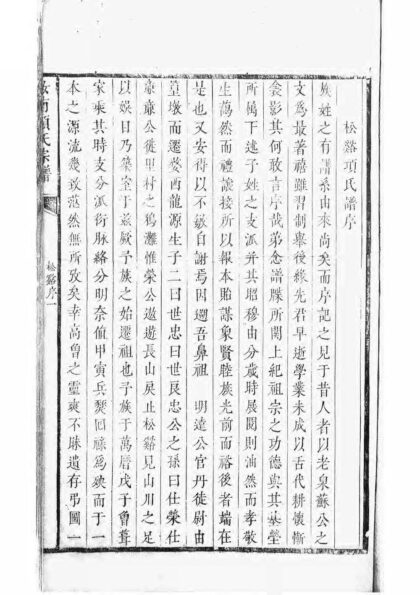 松谿項氏譜序
族姓之有譜系由來尚矣而序記之見于昔人者以老泉蘇公之
文爲最著禧雖習制舉後緣先君早逝學業未成以舌代耕懷慚
衾影其何敢言序哉弟念譜牒所關上紀祖宗之功德與其墓塋
所屬下述子姓之支派并其昭穆由分歲時展閱則油然而孝敬
生藹然而禮讓接所以報本貽謀象賢睦族光前而裕後者端在
是也又安得以不敏自謝焉因遡吾鼻祖 明達公官丹徒尉由
篁墩而遷婺西龍源生子二曰世忠曰世良忠公之孫曰仕榮仕
公徙里村之鴉灘惟榮公遨遊長山戾止松谿見山川之足
以娛目乃築室于茲厥予族之始遷祖也予族于萬曆戊子會葺
家乘其時支分派衍脉絡分明奈值甲寅兵燹回祿爲殃而于一
本之源流幾致茫然無所攷矣幸高曾之靈爽不昧遺存弔圖一
汝南項氏宗譜
松谿序一